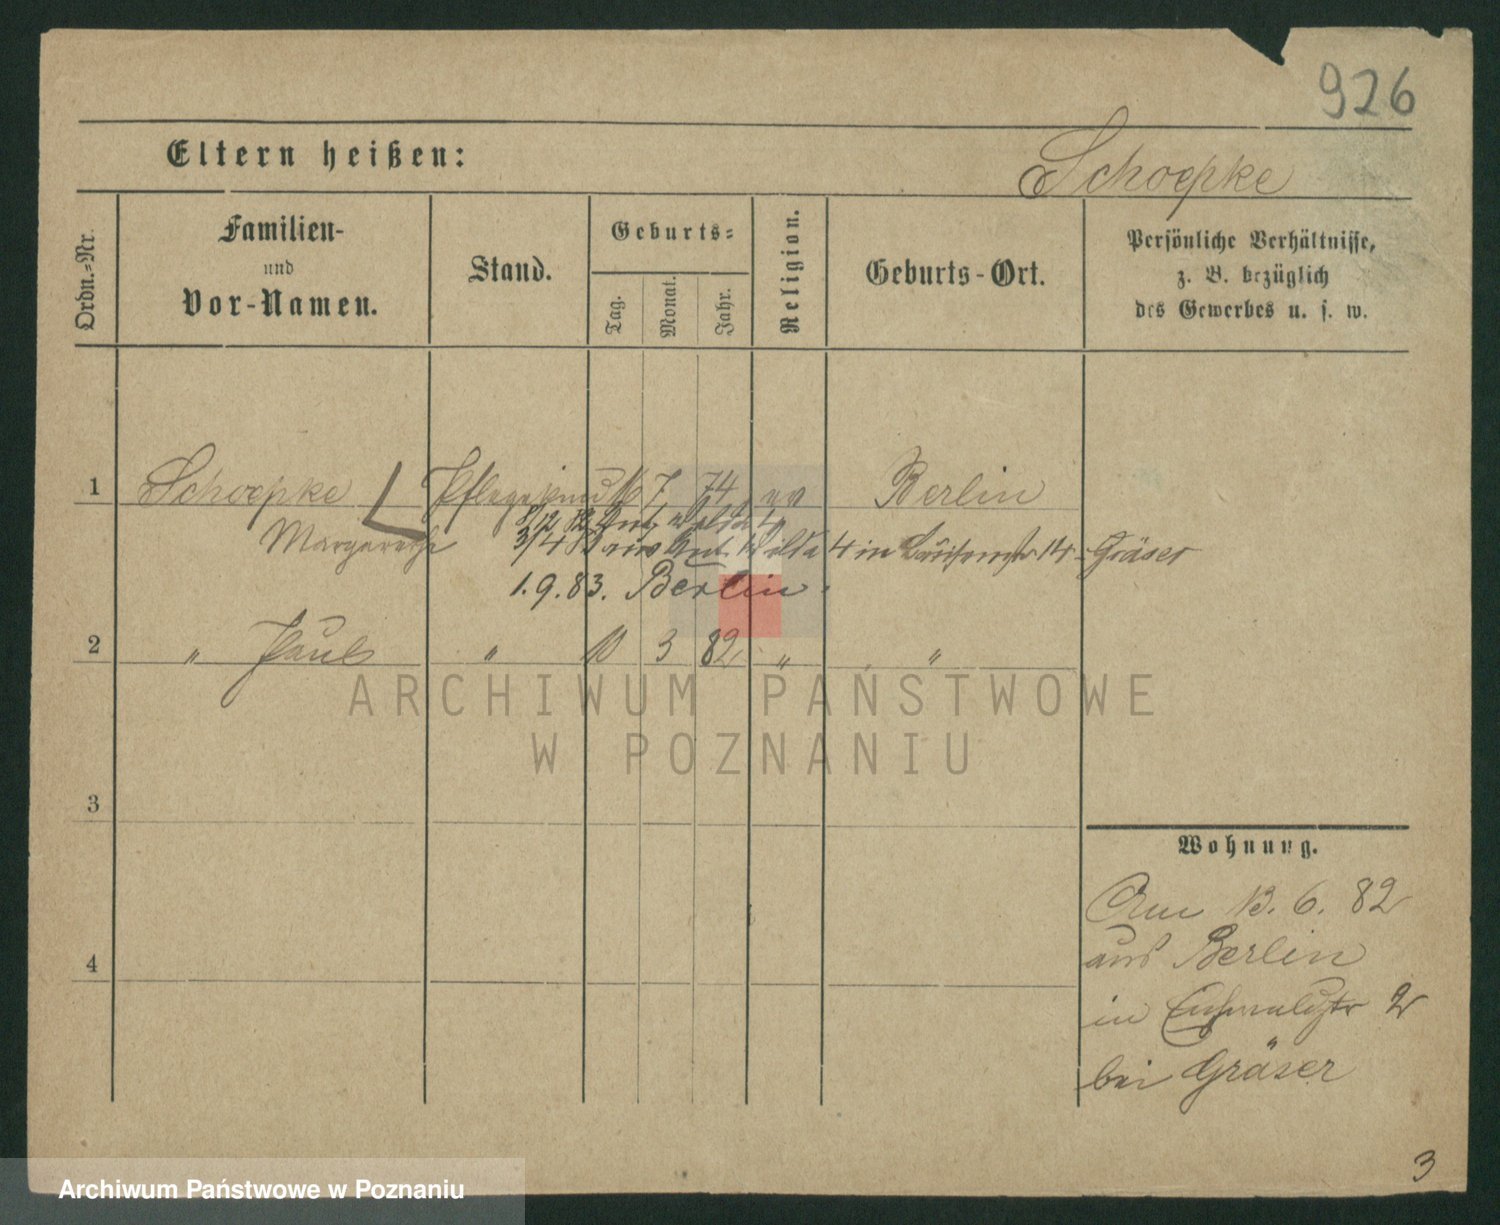 926
Eltern heißen:
Schoepke
Ordn.=Nr.
Familien-
und
Vor-Namen.
Stand.
Geburts=
Tag.
Monat.
Jahr.
Religion.
Geburts-Ort.
Persönliche Verhältnisse,
z. B. bezüglich
des Gewerbes u. s. w.
1 Schoepke Pflegekind 16 7 74 ev Berlin
8/12 82 Gut
Margarethe 3/4 aus Gut. Wilda 4 in 14 - Gräser
1.9.83. Berlin.
2 " Paul " 10 3 82 " "
ARCHIWUM PAŃSTWOWE
W POZNANIU
3
Wohnung.
Am 13. 6. 82
aus Berlin
4
in 2
bei Gräser
3
Archiwum Państwowe w Poznaniu